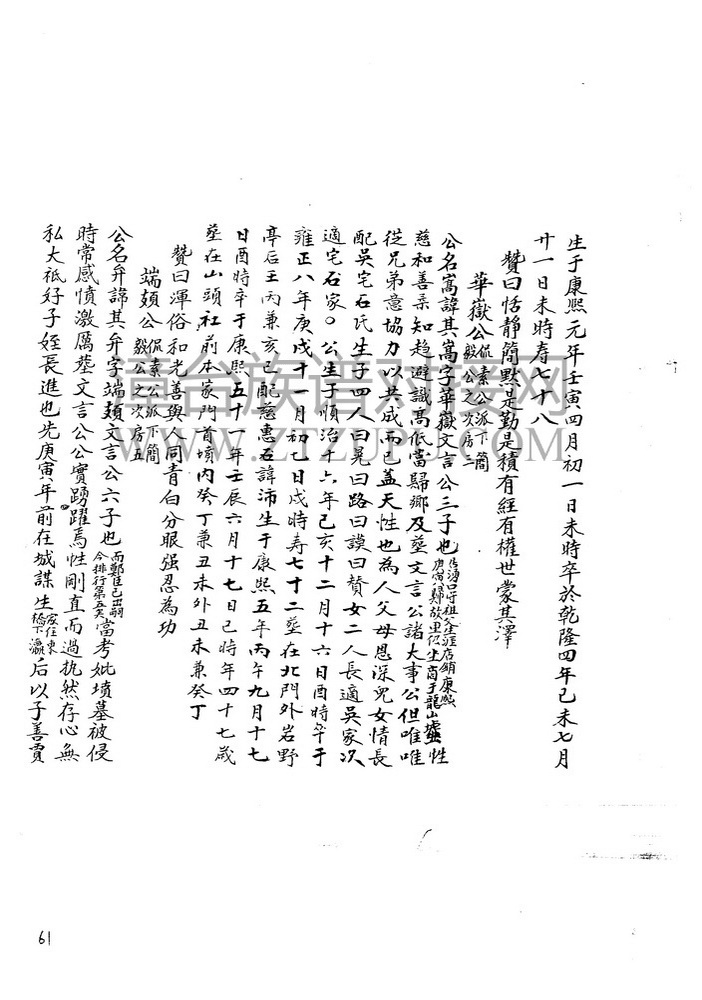 生于康熙元年壬寅四月初一日未時卒於乾隆四年己未七月
廿一日未時寿七十八
贊曰恬静簡默是勤是積有經有權世蒙其澤
華嶽公侃素公派下簡毅公之次房二
公名嵩諱其嵩字華嶽文言公三子也
庚寅歸故里仍坐商于龍山墟性
慈和善柔知趋避識高低當歸鄉及塟文言公諸大事公但唯唯
從兄弟意協力以共成而已盖天性也為人父母恩深兒女情長
配吴宅石氏生子四人曰晃曰路曰謨曰贊女二人長適吴家次
適宅石家○公生于順治十六年己亥十二月十六日酉時卒于
雍正八年庚戌十一月初七日戌時寿七十二塟在北門外岩野
亭后壬丙兼亥巳配慈惠石諱沛生于康熙五年丙午九月十七
日酉時卒于康熙五十一年壬辰六月十七日巳時年四十七歲
塟在山頭社前本家門首墳内癸丁兼丑未外丑未兼癸丁
贊曰渾俗和光善與人同青白分眼强忍為功
端頬公侃素公派下簡毅公之次房五
公名弁諱其弁字端頬文言公六子也而鄭氏已出嗣今排行第五矣當考妣墳墓被侵
時常感憤激厲塟文言公公實踴躍焉性剛直而過执然存心無
私大祇好子姪長進也先庚寅年前在城謀生家住東橋下瀛后以子善賈
台族谱对接网
WWW.ZTZUPU.COM
61